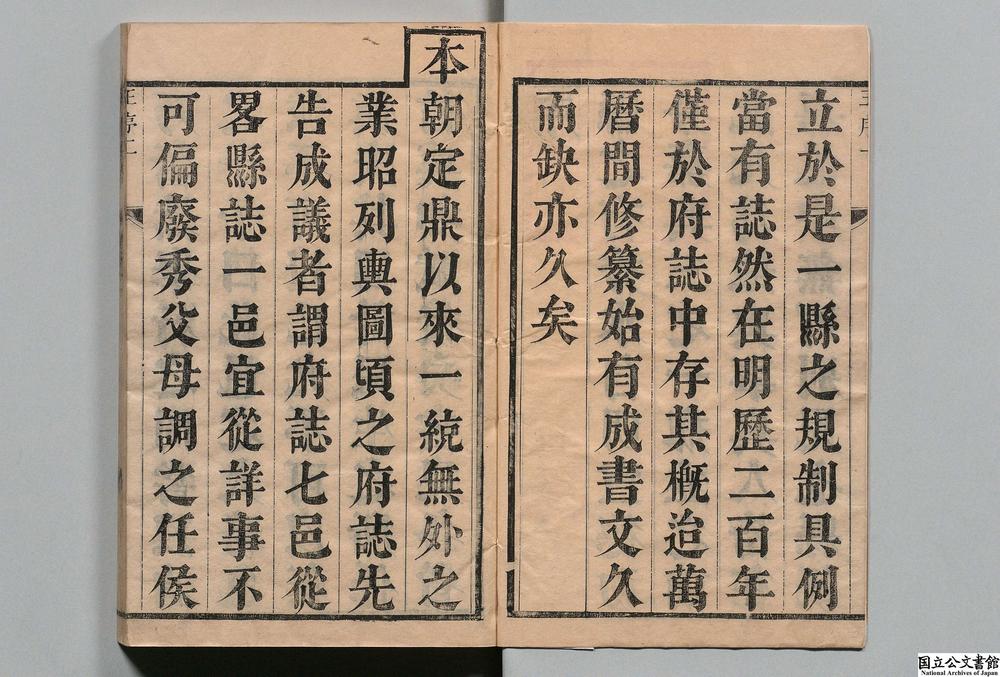 立於是一縣之規制具例
當有誌然在明歷二百年
僅於府誌中存其概迨萬
曆間修纂始有成書文久
而缺亦久矣
本朝定鼎以來一統無外之
業昭列輿圖頃之府誌先
告成議者謂府誌七邑從
畧縣誌一邑宜從詳事不
可偏廢秀父母調之任侯
国立公文書館
National Archives of Japan